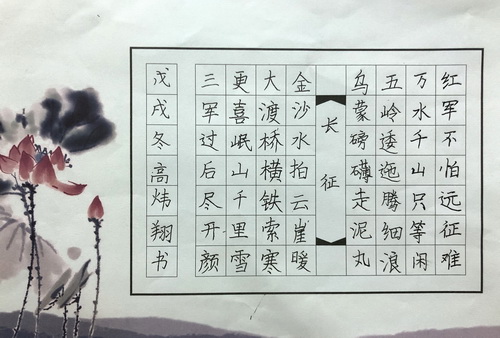 红军不怕远征难
万水千山只等闲
五岭逶迤腾细浪
乌蒙磅礴走泥丸
长征
金沙水拍云崖暖
大渡桥横铁索寒
更喜岷山千里雪
三军过后尽开颜
戊戌冬高炜翔书